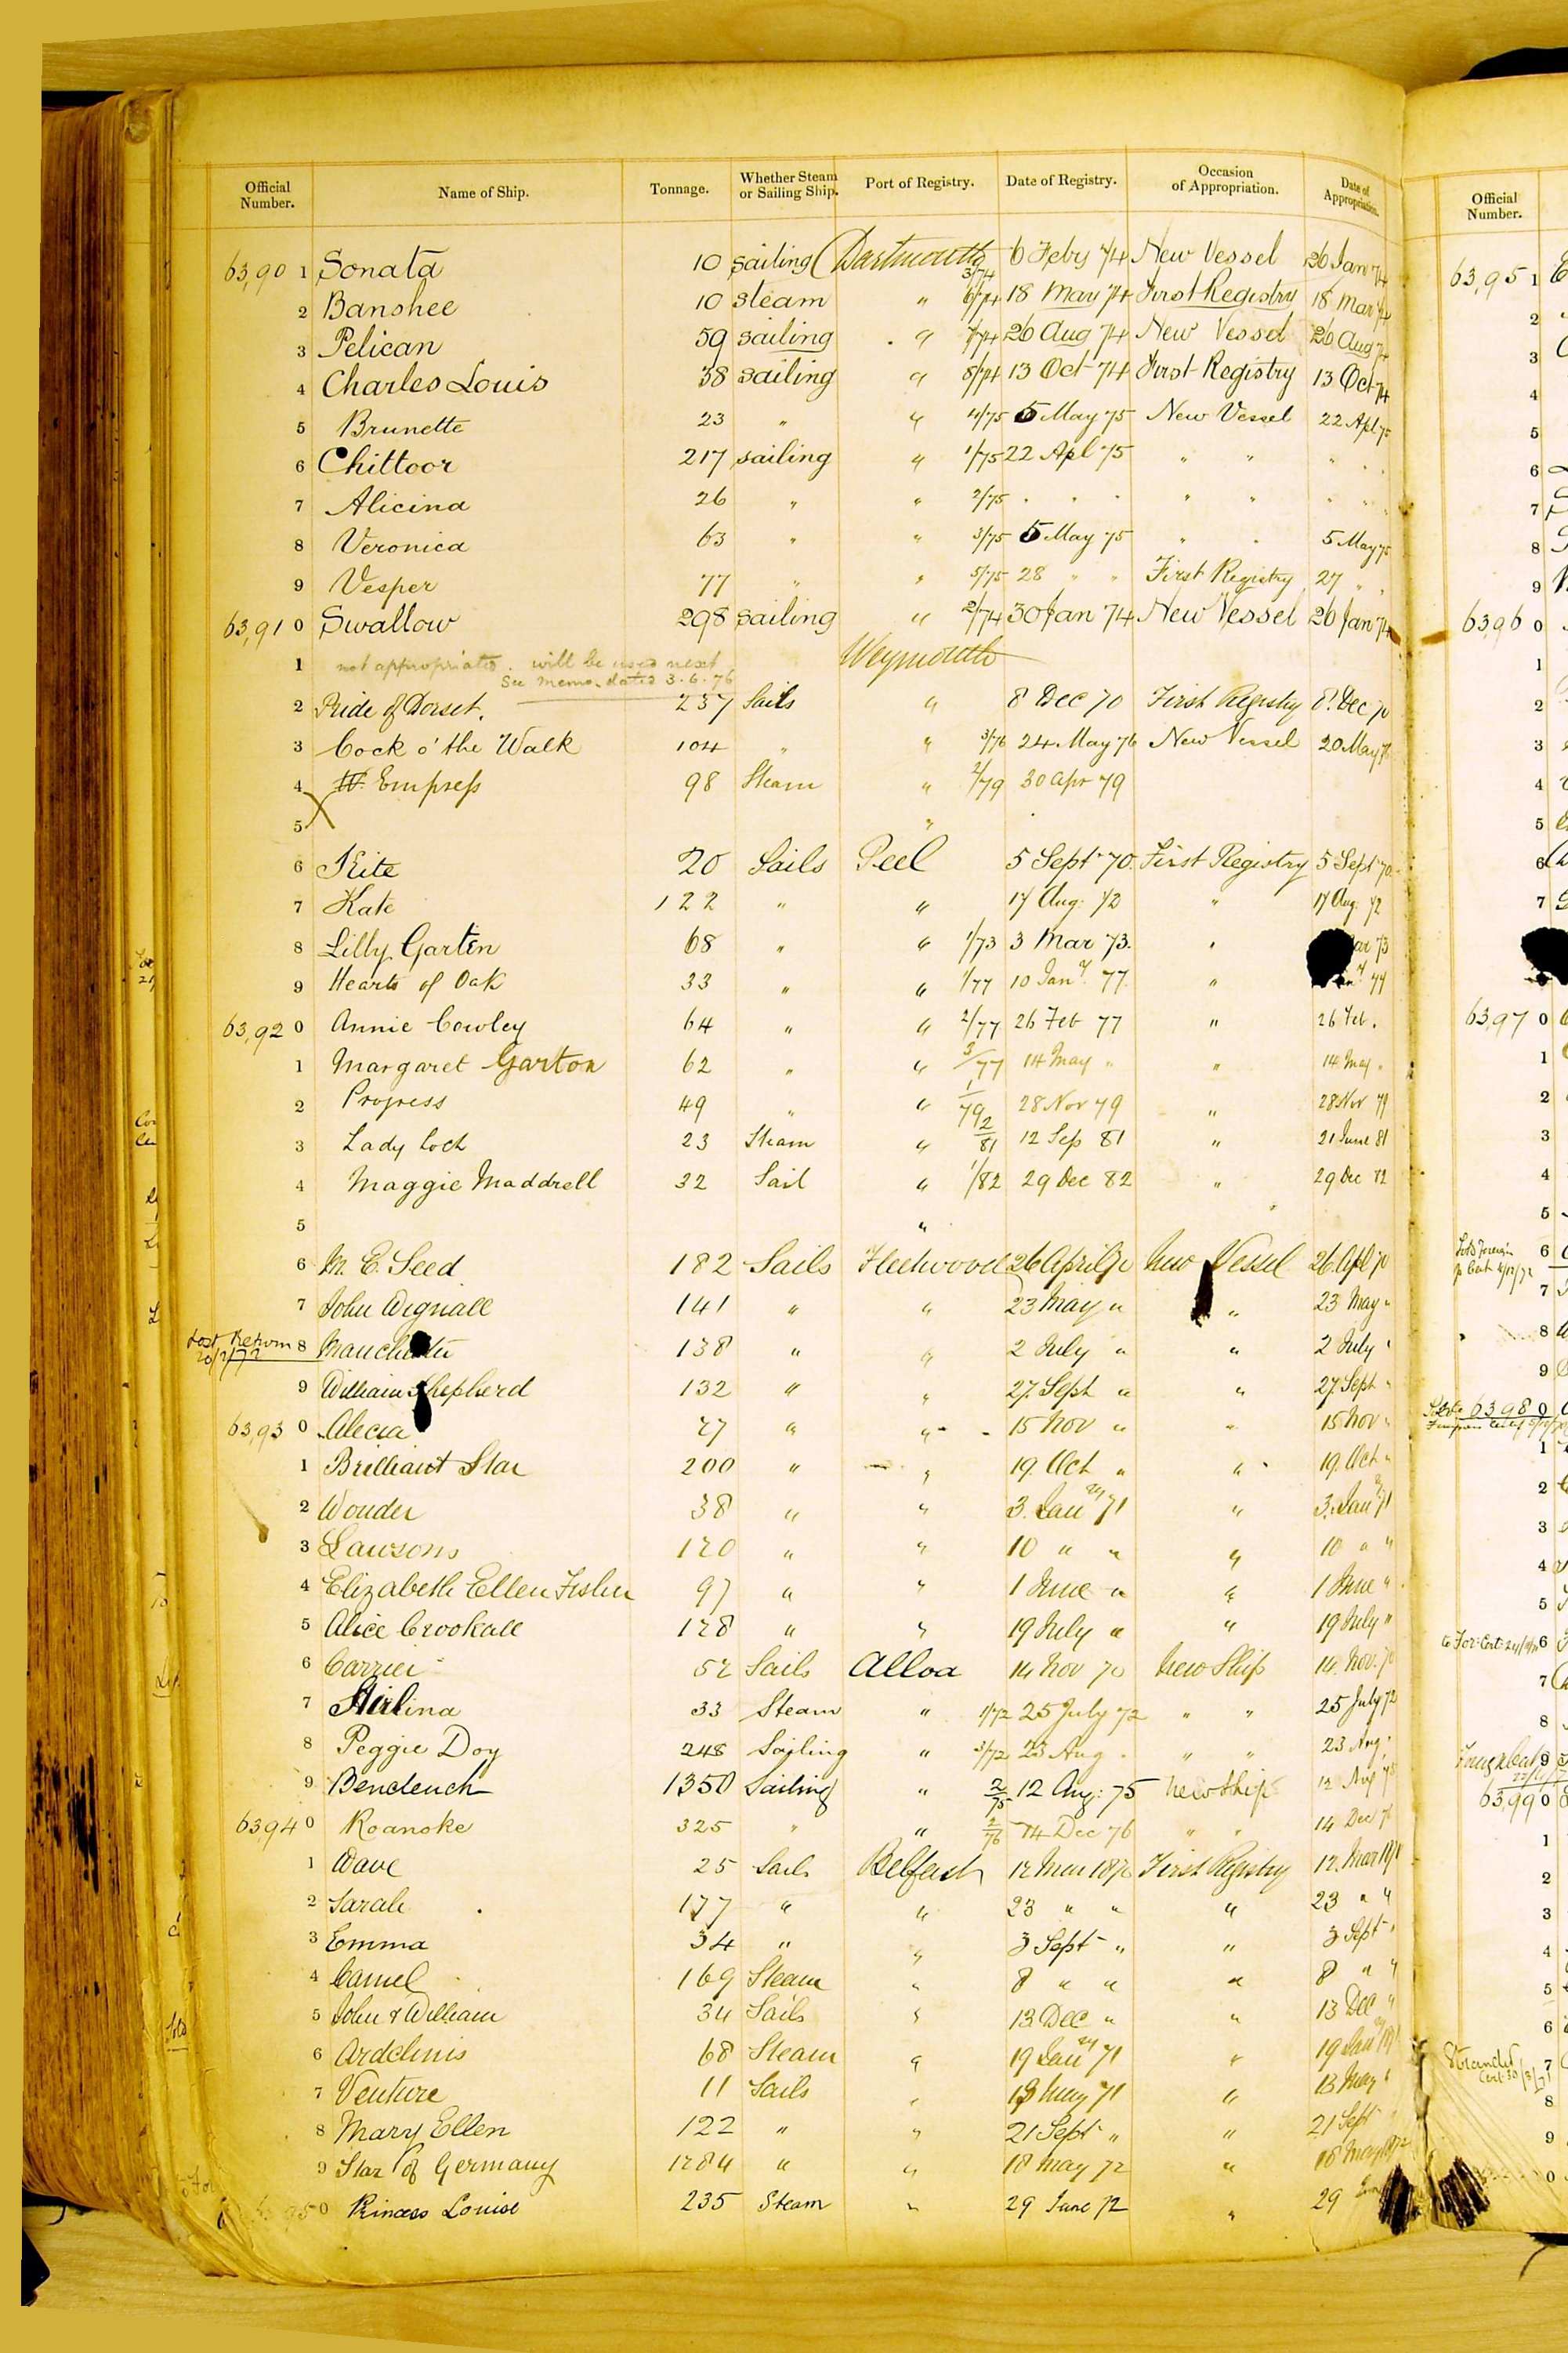 Official Number. Name of Ship. Tonnage. Whether Steam or Sailing Ship. Port of Registry. Date of Registry. Occasion of Appropriation. Date of Appropriation.
63,90 1 Sonata 10 sailing Dartmouth 3/74 6 Feby 74 New Vessel 26 Jan 74
2 Banshee 10 steam " 6/74 18 Mar 74 First Registry 18 Mar 74
3 Pelican 59 sailing " 7/74 26 Aug 74 New Vessel 26 Aug 74
4 Charles Louis 38 sailing " 8/74 13 Oct 74 First Registry 13 Oct 74
5 Brunette 23 " " 4/75 5 May 75 New Vessel 22 Apl 75
6 Chittoor 217 sailing " 1/75 22 Apl 75 " " " " "
7 Alicina 26 " " 2/75 " " " " " " " "
8 Veronica 63 " " 3/75 5 May 75 " " 5 May 75
9 Vesper 77 " " 5/75 28 " " First Registry 27 " "
63,91 0 Swallow 298 sailing " 2/74 30 Jan 74 New Vessel 26 Jan 74
1 not appropriated. will be used next Weymouth
See memo. dated 3.6.76
2 Pride of Dorset. 237 Sails " 8 Dec 70 First Registry 8 Dec 70
3 Cock o' the Walk 104 " " 3/76 24 May 76 New Vessel 20 May 76
4 Empress 98 Steam " 2/79 30 Apr 79
5 "
6 Kite 20 Sails Peel 5 Sept 70. First Registry 5 Sept 70.
7 Kate 122 " " 17 Aug: 72 " 17 Aug. 72
8 Lilly Garten 68 " " 1/73 3 Mar 73. " 73
9 Hearts of Oak 33 " " 1/77 10 Jany. 77. " 77
63,92 0 Annie Cowley 64 " " 2/77 26 Feb 77 " 26 Feb.
1 Margaret Garton 62 " " 3/77 14 May " " 14 May "
2 Progress 49 " " 1/79 28 Nov 79 " 28 Nov 79
3 Lady Loch 23 Steam " 2/81 12 Sep 81 " 21 June 81
4 Maggie Maddrell 32 Sail " 1/82 29 Dec 82 " 29 Dec 82
5 "
6 M. E. Seed 182 Sails Fleetwood 26 April 70 New Vessel 26 Apl 70
7 John Wignall 141 " " 23 May " " 23 May "
Lost Return 20/2/72 8 Manchester 138 " " 2 July " " 2 July "
9 William Shepherd 132 " " 27 Sept " " 27 Sept "
63,93 0 Alecia 77 " " 15 Nov " " 15 Nov "
1 Brilliant Star 200 " " 19. Oct " " 19. Oct "
2 Wonder 38 " " 3. Jany 71 " 3. Jany 71
3 Lawsons 120 " " 10 " " " 10 " "
4 Elizabeth Ellen Fisher 97 " " 1 June " " 1 June "
5 Alice Crookall 128 " " 19 July " " 19 July "
6 Carrier 52 Sails Alloa 14 Nov 70 New Ship 14. Nov. 70
7 Stirlina 33 Steam " 1/72 25 July 72 " " 25 July 72
8 Peggie Doy 248 Sailing " 3/72 23 Aug " " " 23 Aug "
9 Bencleuch 1350 Sailing " 2/75 12 Aug: 75 New Ship 12 Aug 75
63,94 0 Roanoke 325 " " 2/76 14 Dec 76 " " 14 Dec 76
1 Wave 25 Sails Belfast 12 Mar 1870 First Registry 12. Mar 1870
2 Sarah 177 " " 23 " " " 23 " "
3 Emma 34 " " 3 Sept " " 3 Sept "
4 Camel 169 Steam " 8 " " " 8 " "
5 John & William 34 Sails " 13 Dec " " 13 Dec "
6 Ardclinis 68 Steam " 19 Jany 71 " 19 Jany 1871
7 Venture 11 Sails " 13 May 71 " 13 May "
8 Mary Ellen 122 " " 21 Sept " " 21 Sept
9 Star of Germany 1284 " " 18 May 72 " 18 May 1872
950 Princess Louise 235 Steam " 29 June 72 " 29
Official Number.
63,95 1
2
3
4
5
6
7
8
9
63,96 0
1
2
3
4
5
6
7
63,97 0
1
2
3
4
5
6
7
8
9
63,98 0
1
2
3
4
5
6
7
8
9
63,99 0
1
2
3
4
5
6
Stranded Cert 30/3/71 7
8
9
0